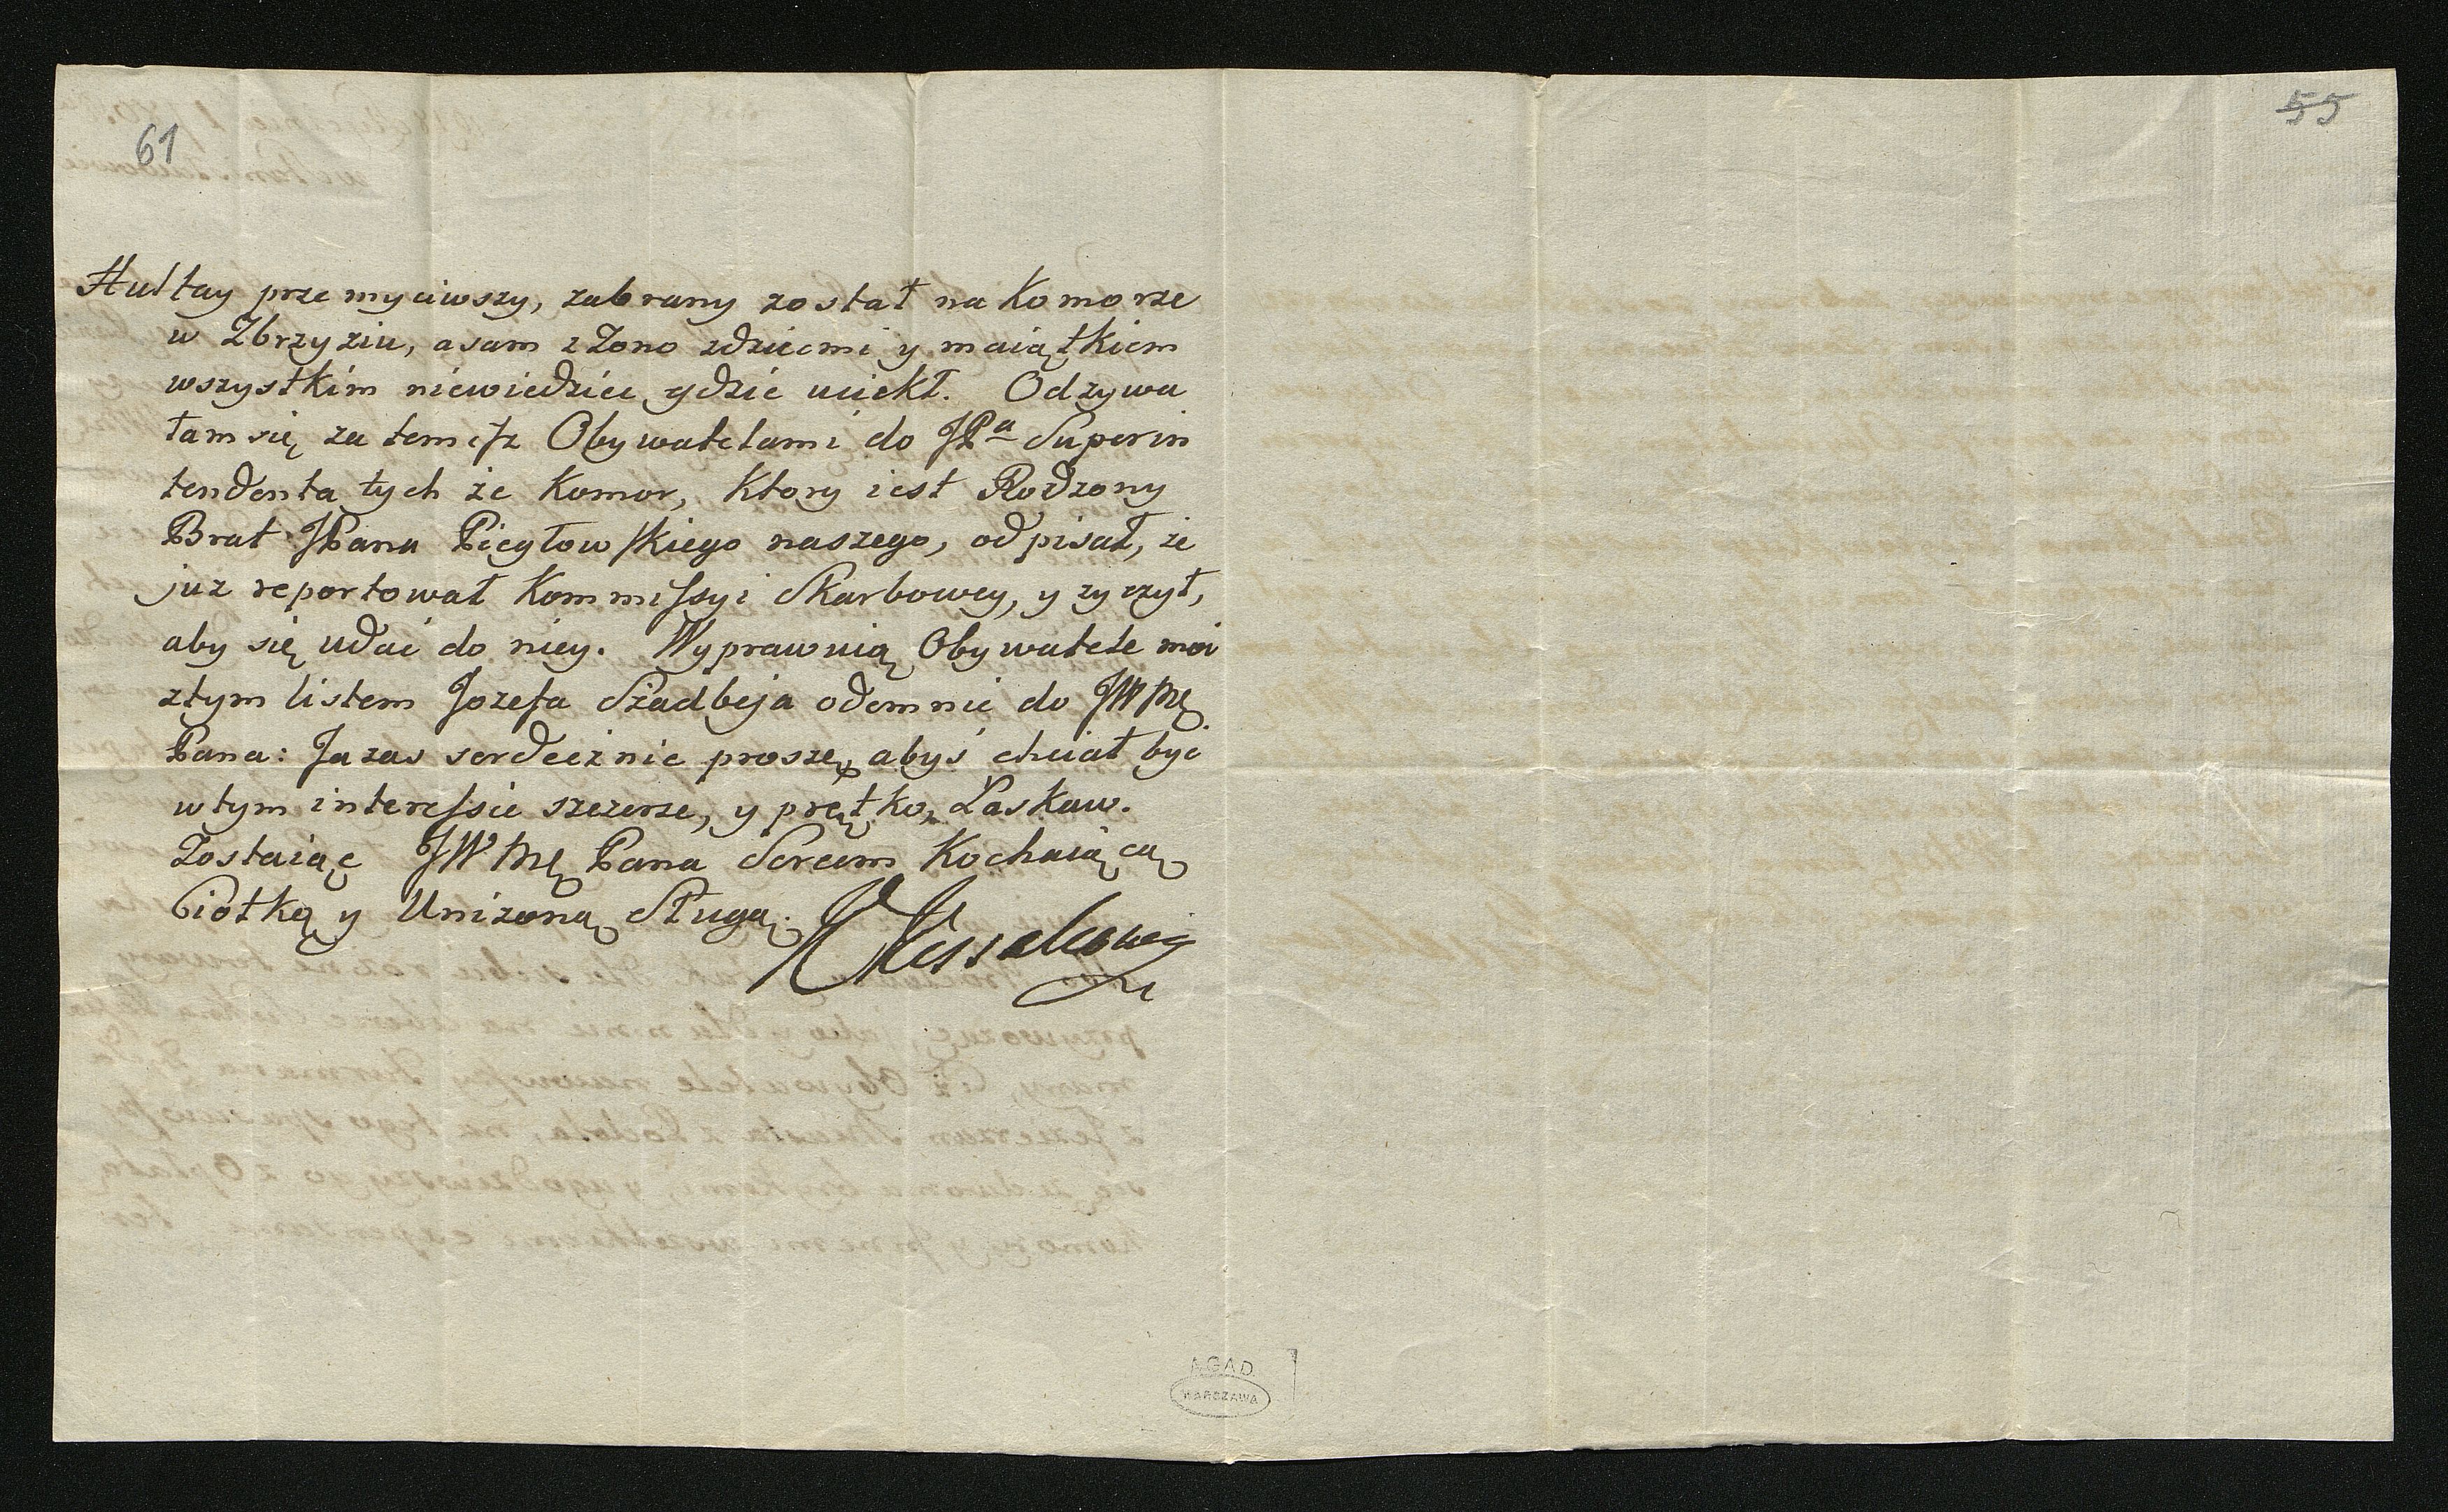 61
55
Hultay przemyciwszy, zabrany został na Komorze
w Zbrzyziu, a sam z Żono zdziecmi y maiątkiem
wszystkim niewiedziec gdzie uciekł. Odzywa
łam się za tem ż Obywatelami do JPa Superin
tendenta tych że Komor, Ktory iest Rodzony
Brat JPana Piegłowskiego naszego, odpisał, że
już reportował Kommissyi Skarbowey, y zyczył,
aby się udać do niey. Wyprawuią Obywatele moi
ztym listem Jozefa Szadbeja odemnie do JWMę
Pana: Ja zas serdecznie proszę, abyś chciał być
wtym interessie szczerze, y prętko, Łaskaw.
Zostaiąc JWMę Pana Sercem Kochaiącą
Ciotką y Unizoną Sługą.
Kossakowska
A.G.A.D.
WARSZAWA